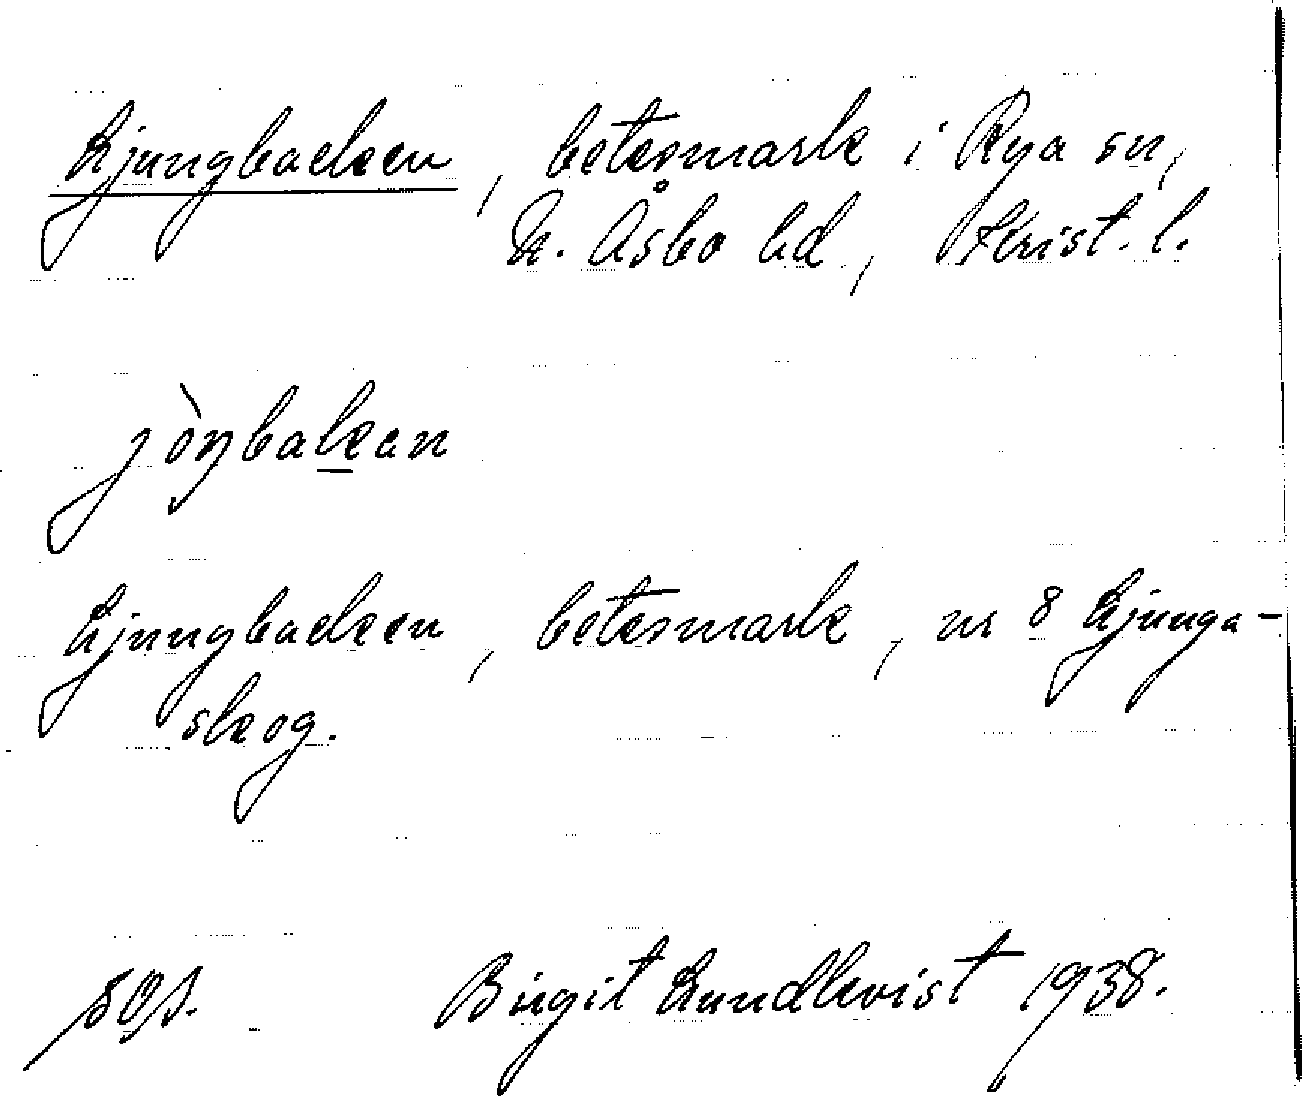 Ljungbacken, betesmark i Rya sn,
N. Åsbo hd., Krist. l.
jòŋbakan
Ljungbacken, betesmark, nr 8 Ljunga-
skog.
Birgit Lundkvist 1938.